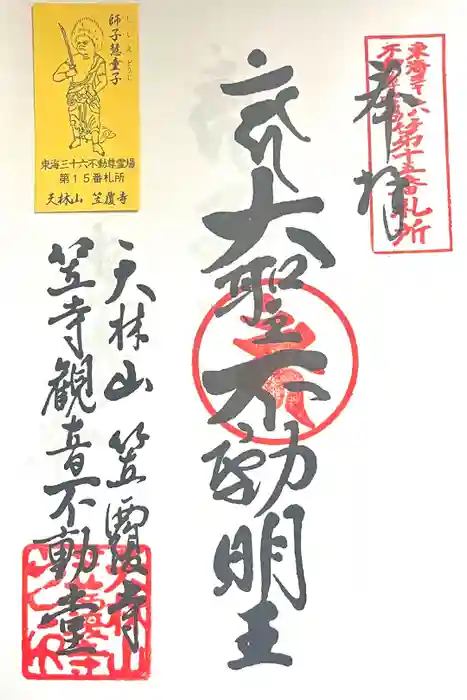 東海三十六
不動尊霊場第十五番札所
奉拝
大聖不動明王
天林山 笠覆寺
笠寺観音不動堂
師子慧童子
ししえどうじ
東海三十六不動尊霊場
第15番札所
天林山 笠覆寺